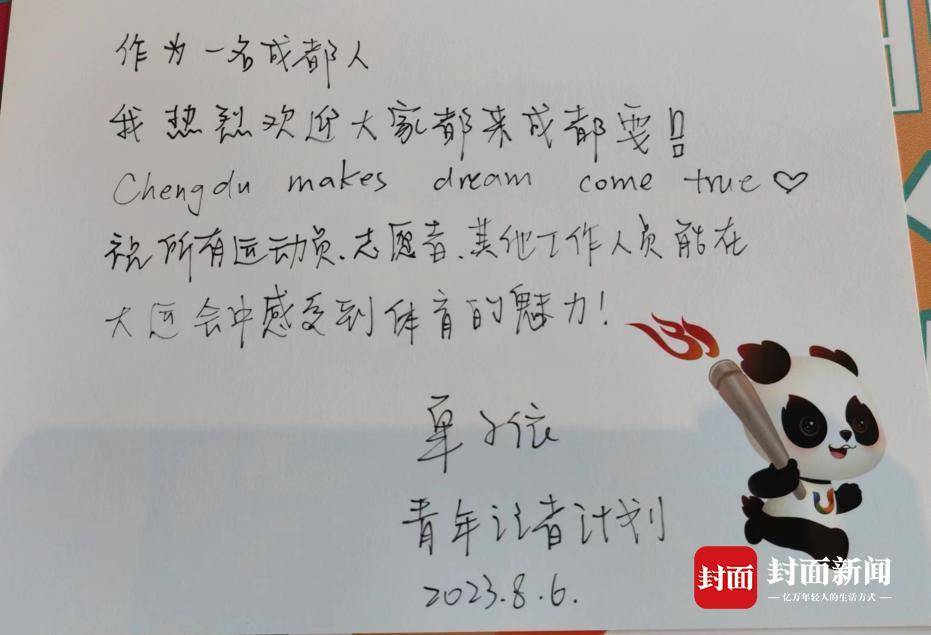 作为一名成都人
我热烈欢迎大家都来成都耍!!
Chengdu makes dream come true♡
祝所有运动员、志愿者、其他工作人员能在
大运会中感受到体育的魅力!
单子依
青年记者计划
2023.8.6.
封面
封面新闻
亿万年轻人的生活方式